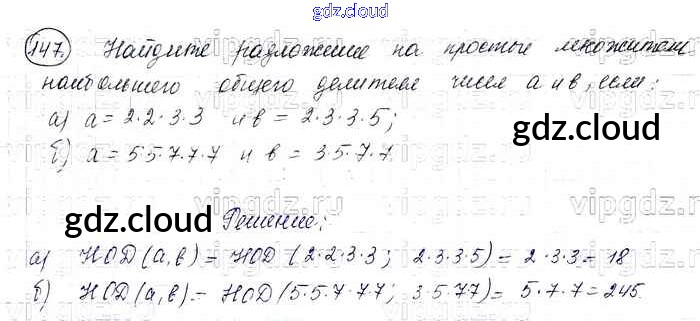 gdz.cloud
147. Найдите разложение на простые множители
наибольшего общего делителя чисел a и в, если:
а) a = 2·2·3·3 и в = 2·3·3·5;
б) a = 5·5·7·7·7 и в = 3·5·7·7.
gdz.cloud
gdz.cloud
Решение:
а) НОД (a, в) = НОД (2·2·3·3; 2·3·3·5) = 2·3·3 = 18
б) НОД (a, в) = НОД (5·5·7·7·7; 3·5·7·7) = 5·7·7 = 245.
gdz.cloud